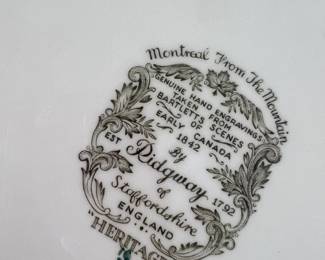 Montreal From The Mountain
GENUINE HAND ENGRAVINGS
TAKEN FROM
BARTLETT'S SCENES
OF
EARLY CANADA
1842
By
EST Ridgway 1792
of
Staffordshire
ENGLAND
"HERITAGE